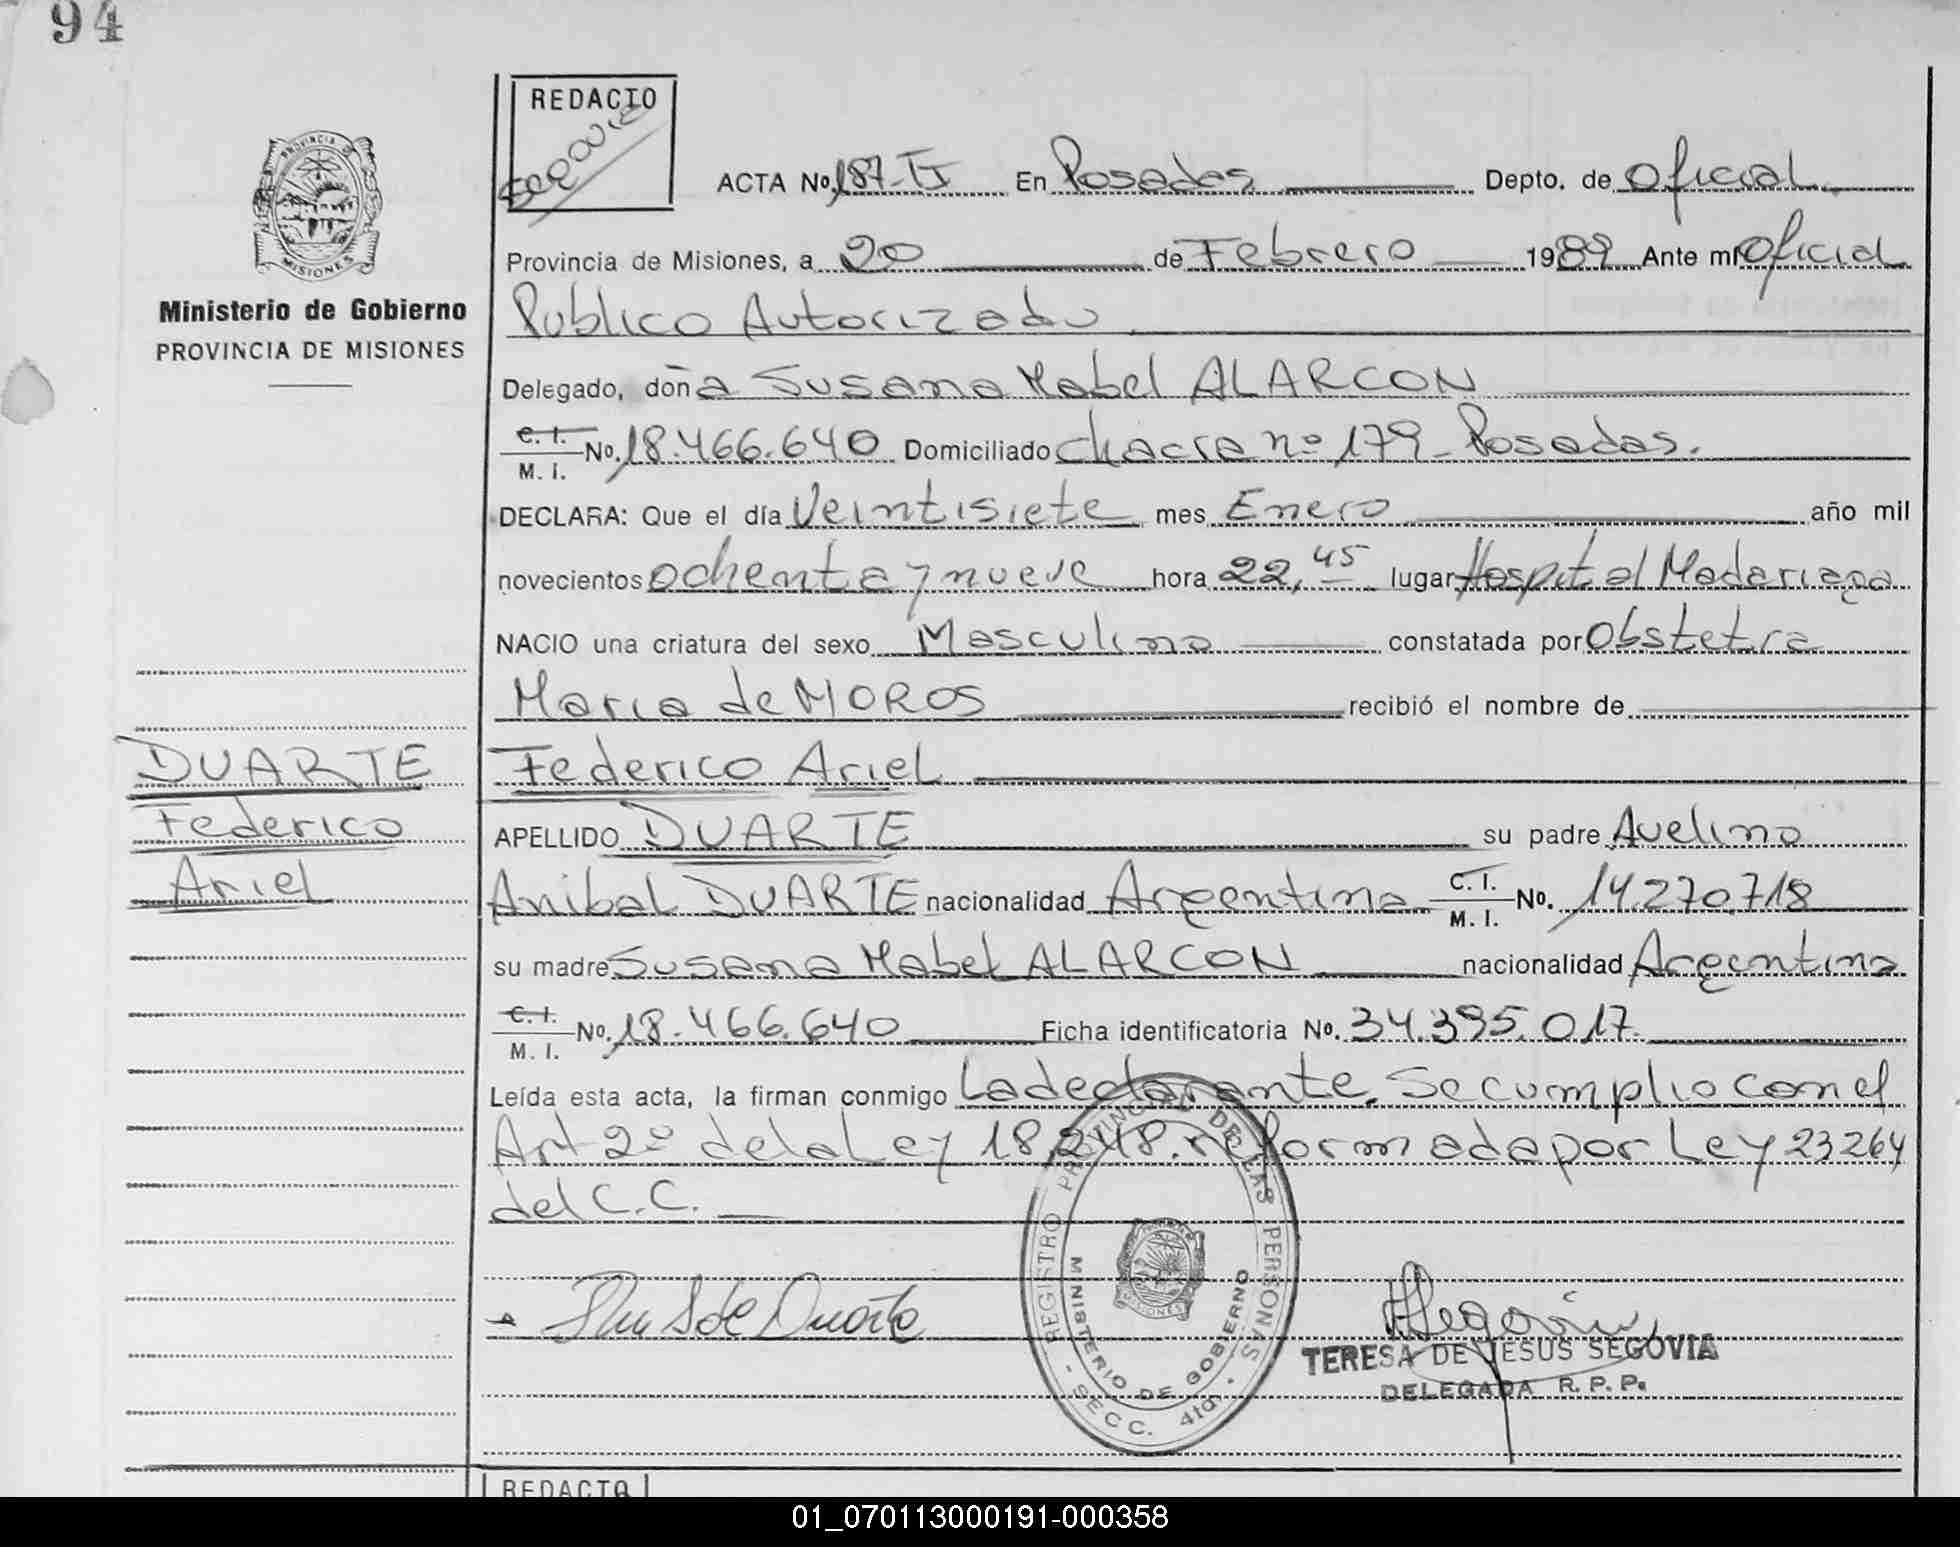 94
REDACTO
SEGOVIA
PROVINCIA DE
MISIONES
Ministerio de Gobierno
PROVINCIA DE MISIONES
ACTA No. 187-II En Posadas Depto. de Oficial.
Provincia de Misiones, a 20 de Febrero 1989 Ante mi Oficial
Publico Autorizado
Delegado, doña Susana Mabel ALARCON
C. I.
M. I. No. 18.466.640 Domiciliado chacra nº 179 - Posadas.
DECLARA: Que el día Veintisiete mes Enero año mil
novecientos ochenta y nueve hora 22,45 lugar Hospital Madariaga
NACIO una criatura del sexo Masculino constatada por Obstetra
Maria de MOROS recibió el nombre de
Federico Ariel
DUARTE
Federico
Ariel
APELLIDO DUARTE su padre Avelino
Anibal DUARTE nacionalidad Argentina C. I.
M. I. No. 14.270.718
su madre Susana Mabel ALARCON nacionalidad Argentina
C. I.
M. I. No. 18.466.640 Ficha identificatoria No. 34.395.017.
Leída esta acta, la firman conmigo La declarante. Se cumplio con el
Art 2º de la Ley 18.248. reformada por Ley 23264
del C.C.
REGISTRO PROVINCIAL DE LAS PERSONAS
MINISTERIO DE GOBIERNO
MISIONES
- SECC. 4ta. -
de Duarte
Segovia
TERESA DE JESUS SEGOVIA
DELEGADA R. P. P.
REDACTO
01_070113000191-000358